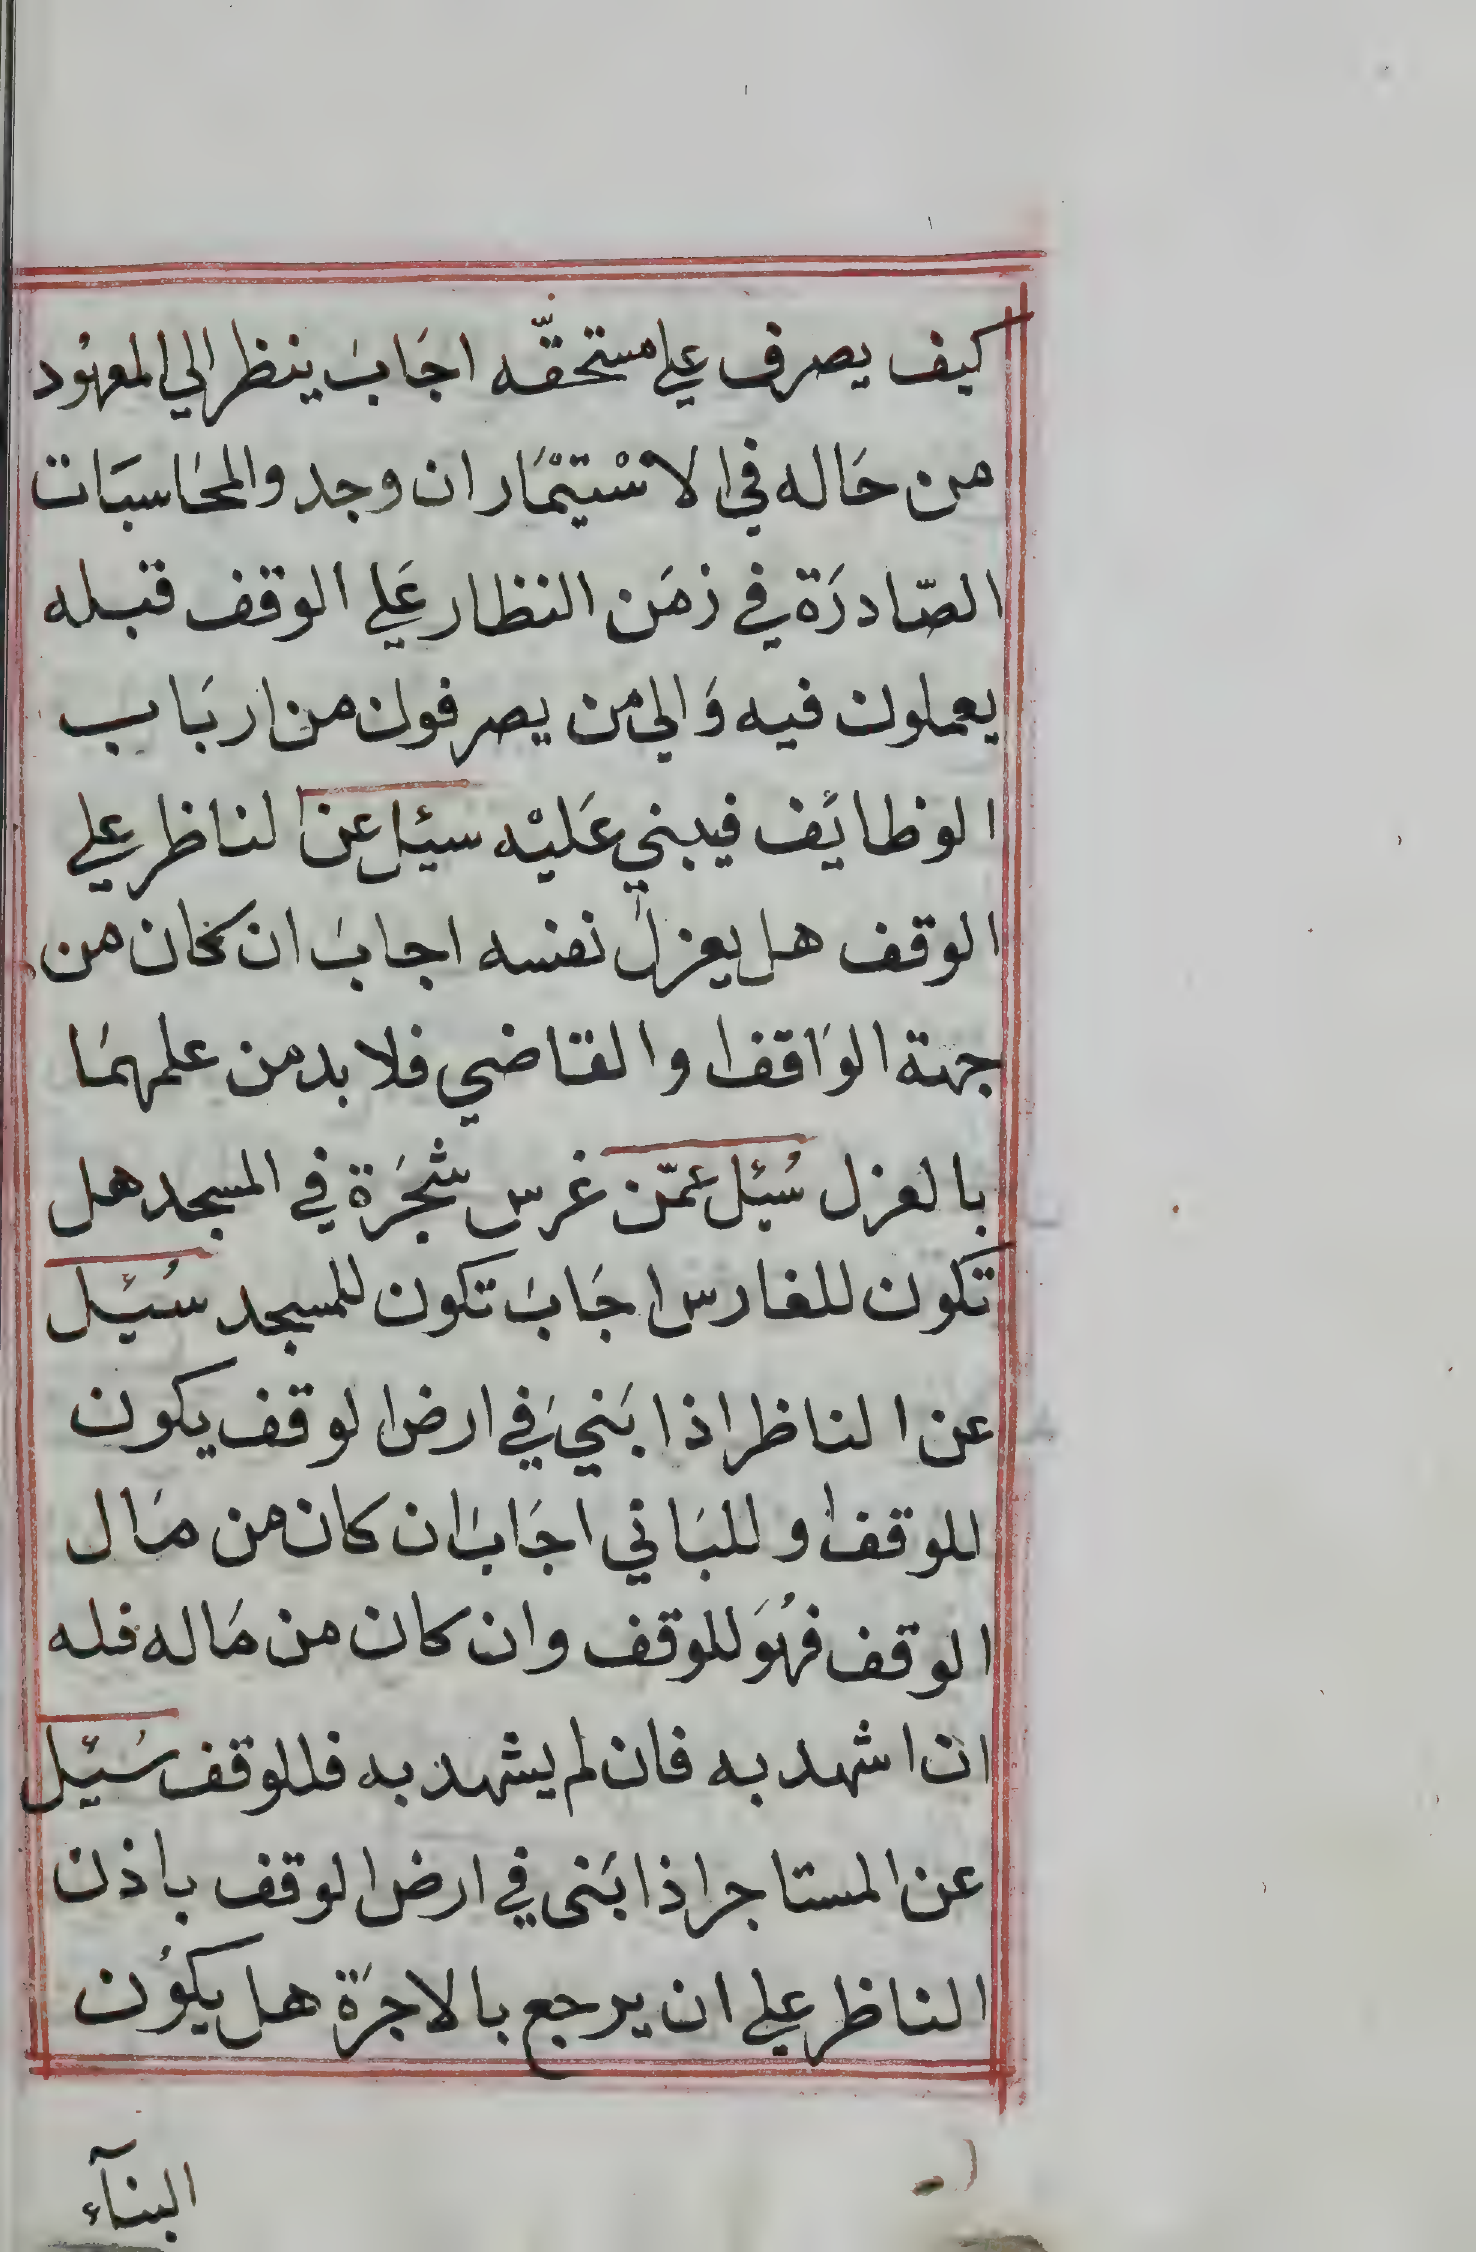 كيف يصرف علي مستحقّه اجَابَ ينظر الي المعهُود
من حَاله في الاسْتيْمَار ان وجد والمحَاسبَات
الصّادرَة في زمَن النظار عَلي الوقف قبله
يعملون فيه وَالي من يصرفون من اربَاب
الوظائف فيبني عَليْه سئل عن الناظر علي
الوقف هل يعزل نفسه اجابَ ان كان من
جهة الوَاقف او القاضي فلا بد من علمهمَا
بالعزل سُئل عمّن غرس شجَرَة في المسجد هل
تكون للغارس اجَابَ تكون للمسجد سُئل
عن الناظر اذا بَنيَ في ارض الوقف يكون
للوقف او للبَاني اجَابَ ان كان من مَال
الوقف فهُوَ للوقف وان كان من مَاله فله
ان اشهد به فان لم يشهد به فللوقف سُئل
عن المستاجر اذا بَنى في ارض الوقف باذن
الناظر علي ان يرجع بالاجرَة هل يكوُن
البنآء